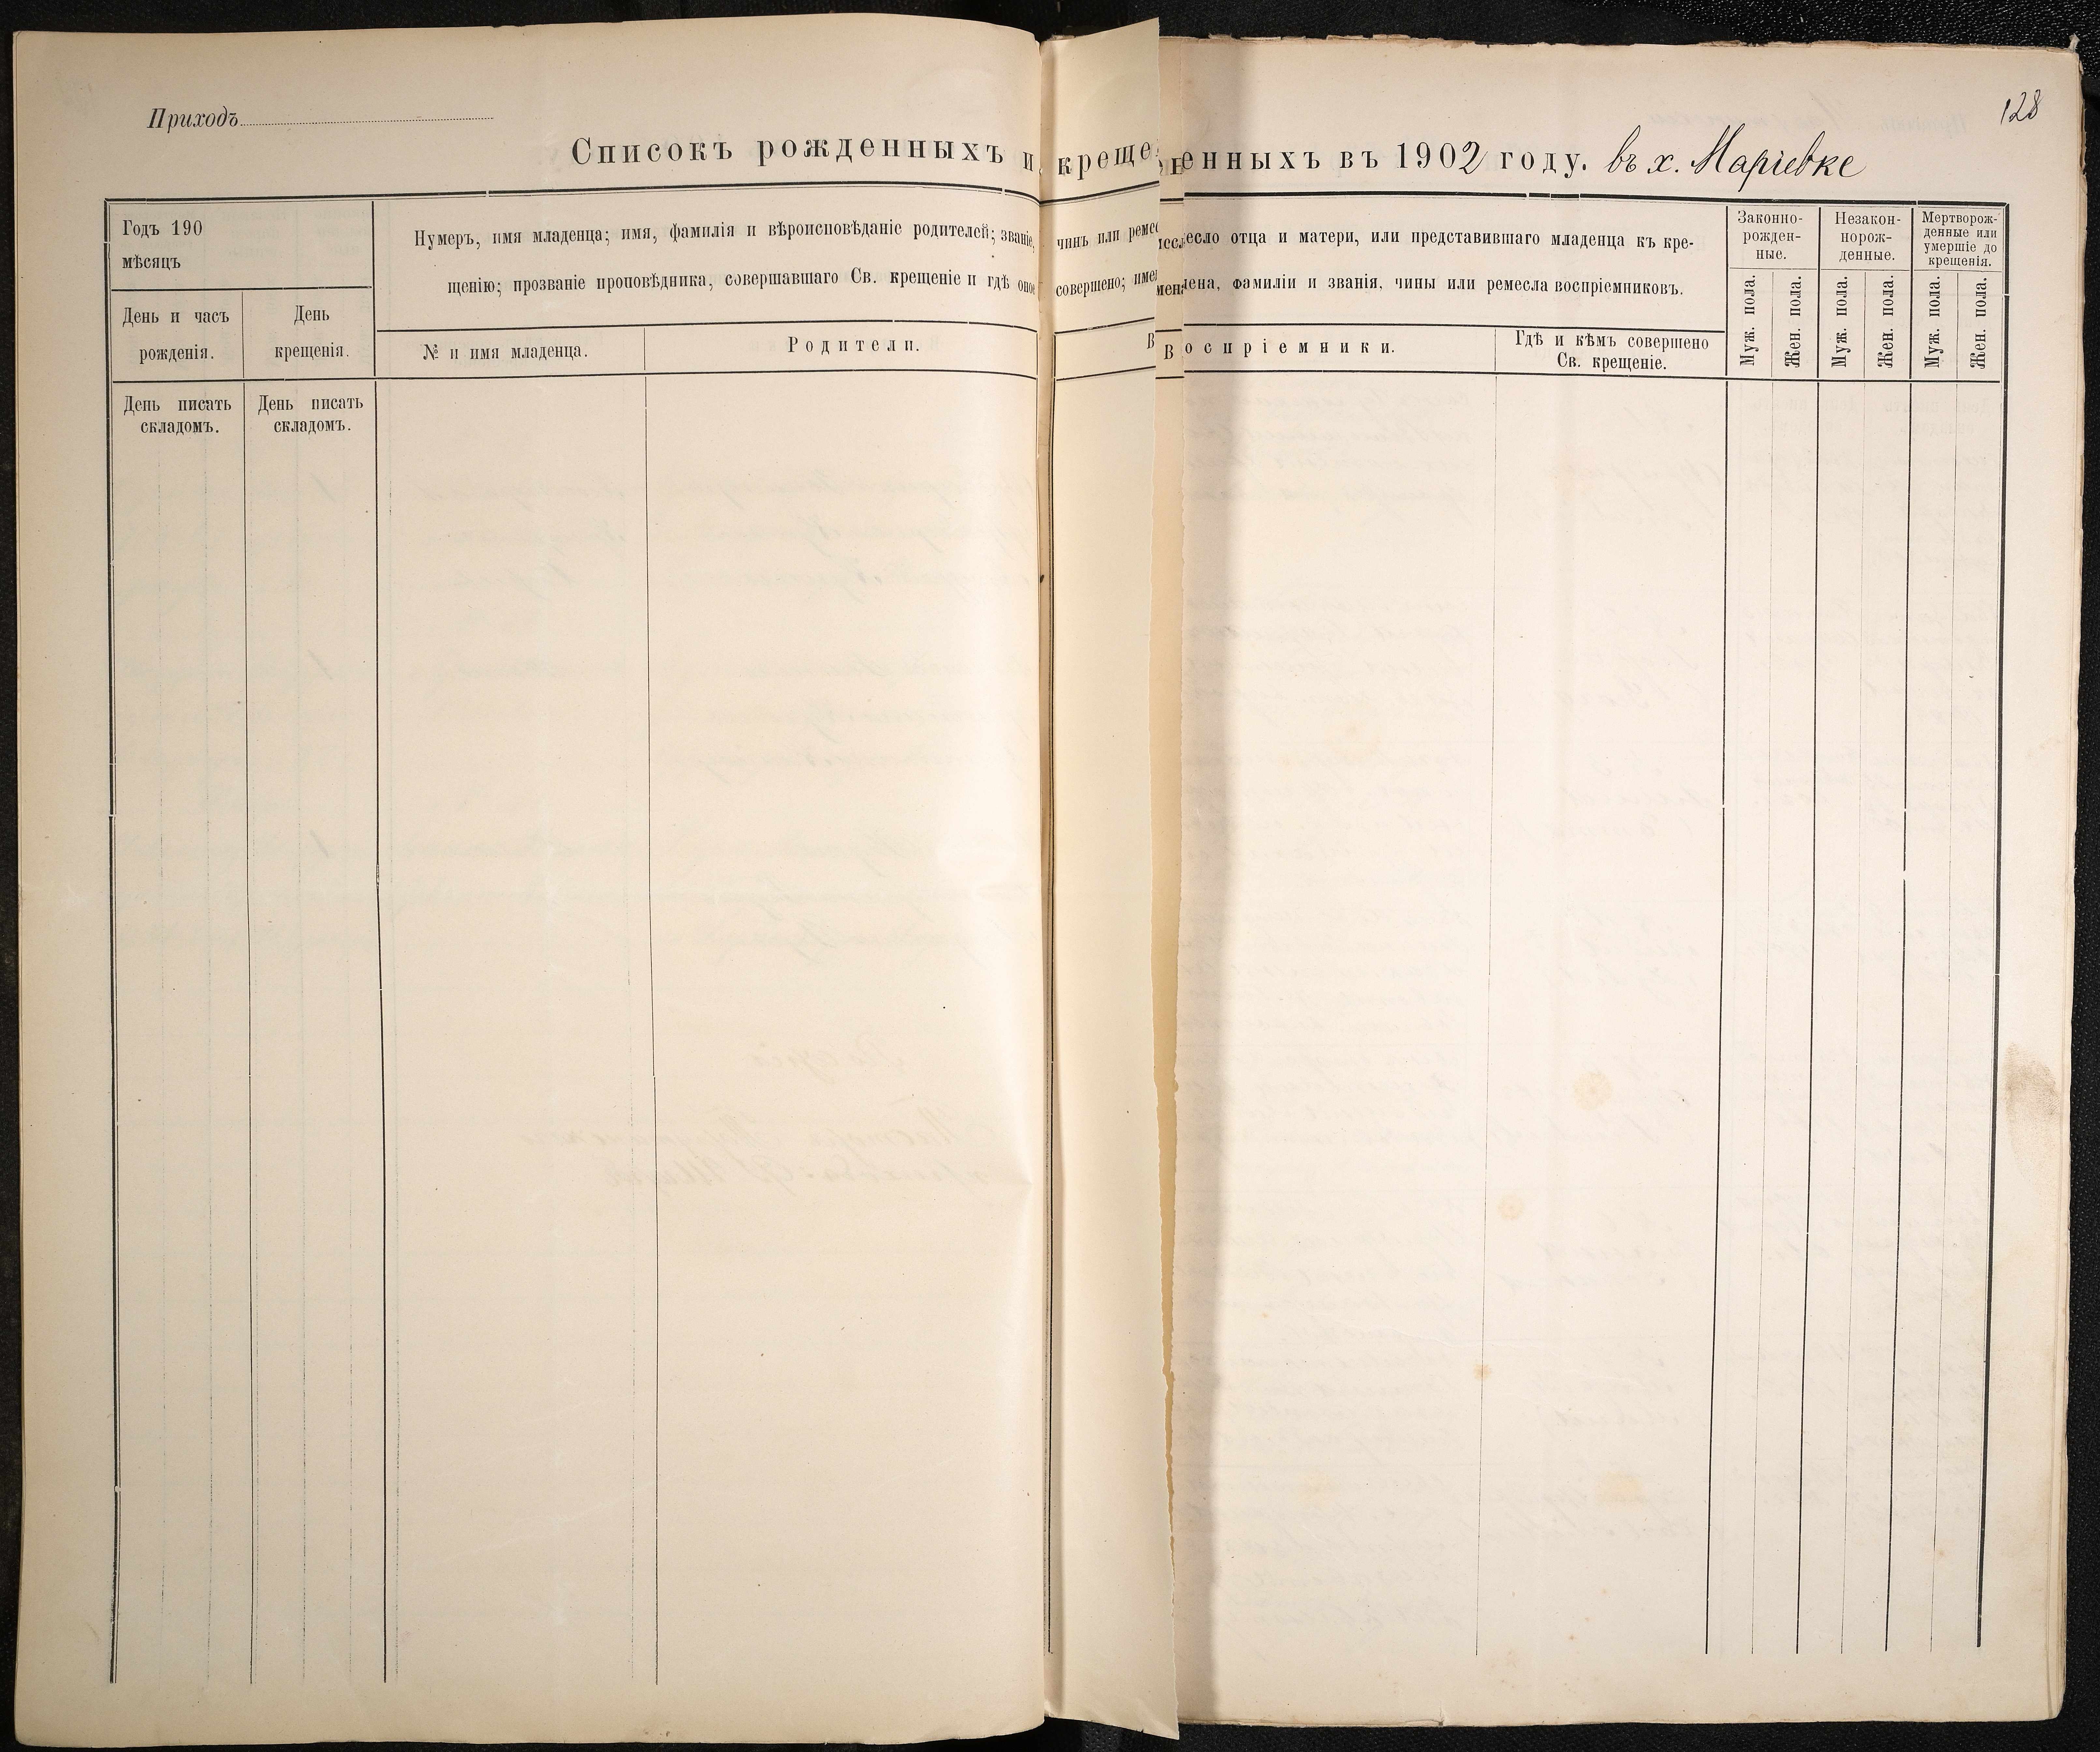 128
Приходъ
Списокъ рожденныхъ и крещенныхъ въ 1902 году. въ х. Маріевке
Годъ 190
мѣсяцъ
День и часъ
рожденія.
День
крещенія.
Нумеръ, имя младенца; имя, фамилія и вѣроисповѣданіе родителей; званіе, чинъ или ремесло отца и матери, или представившаго младенца къ кре-
щенію; прозваніе проповѣдника, совершавшаго Св. крещеніе и гдѣ оное совершено; имена, фамиліи и званія, чины или ремесла воспріемниковъ.
№ и имя младенца.
Родители.
Воспріемники.
Гдѣ и кѣмъ совершено
Св. крещеніе.
Законно-
рожден-
ные.
Незакон-
норож-
денные.
Мертворож-
денные или
умершіе до
крещенія.
Муж. пола.
Жен. пола.
Муж. пола.
Жен. пола.
Муж. пола.
Жен. пола.
День писать
складомъ.
День писать
складомъ.